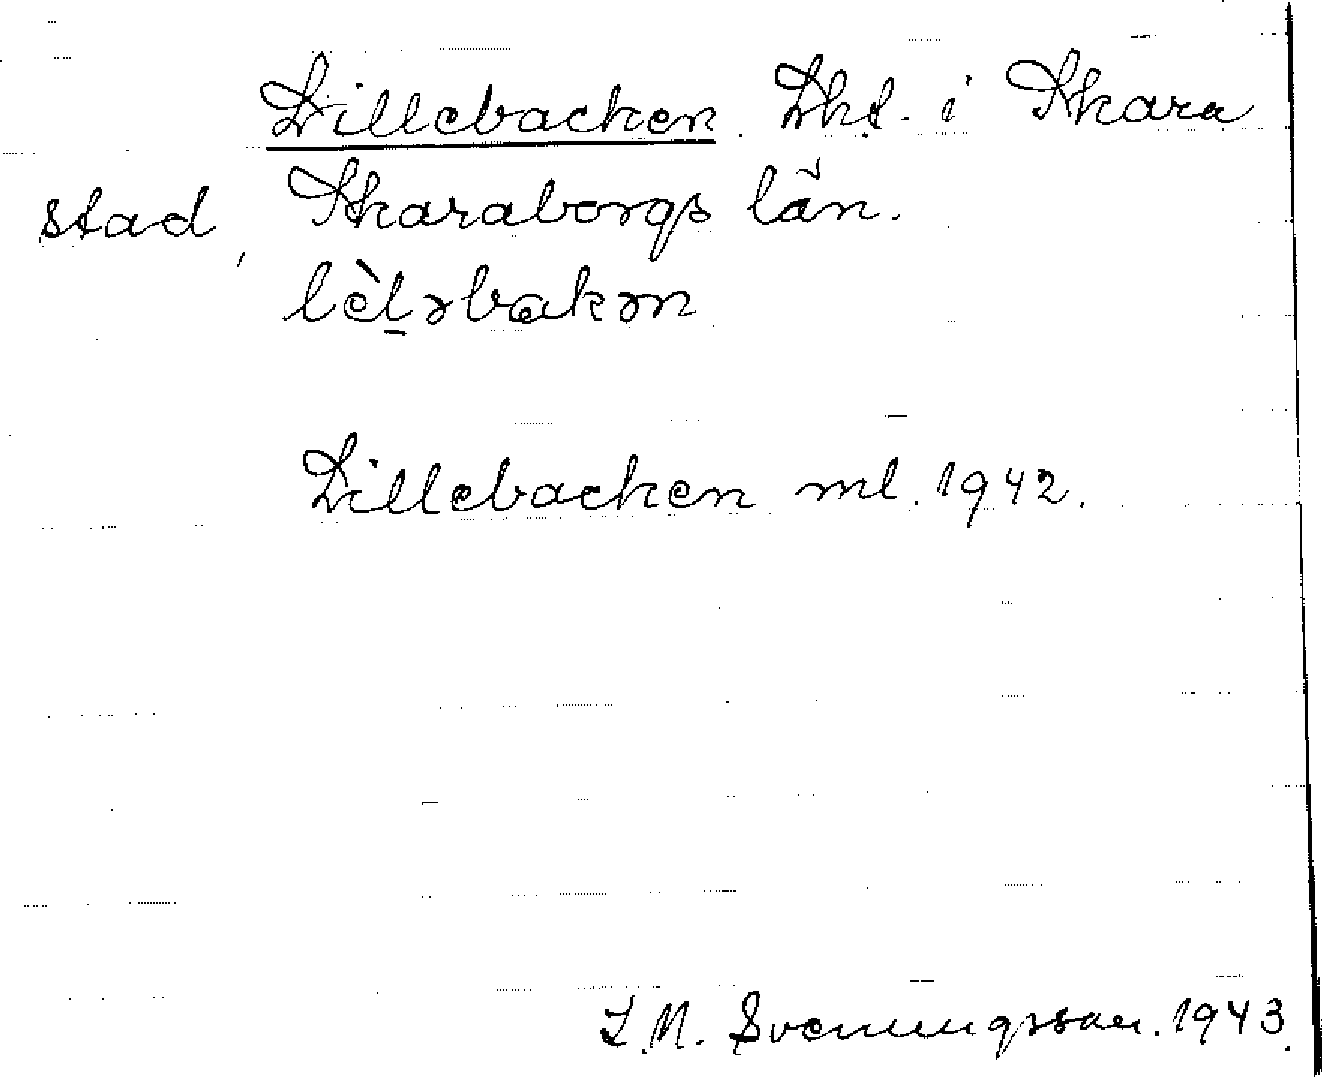 Lillebacken. Lhl. i Skara
stad, Skaraborgs län.
lèl̠əbakən
Lillebacken ml. 1942.
L.M. Svenningsson. 1943.